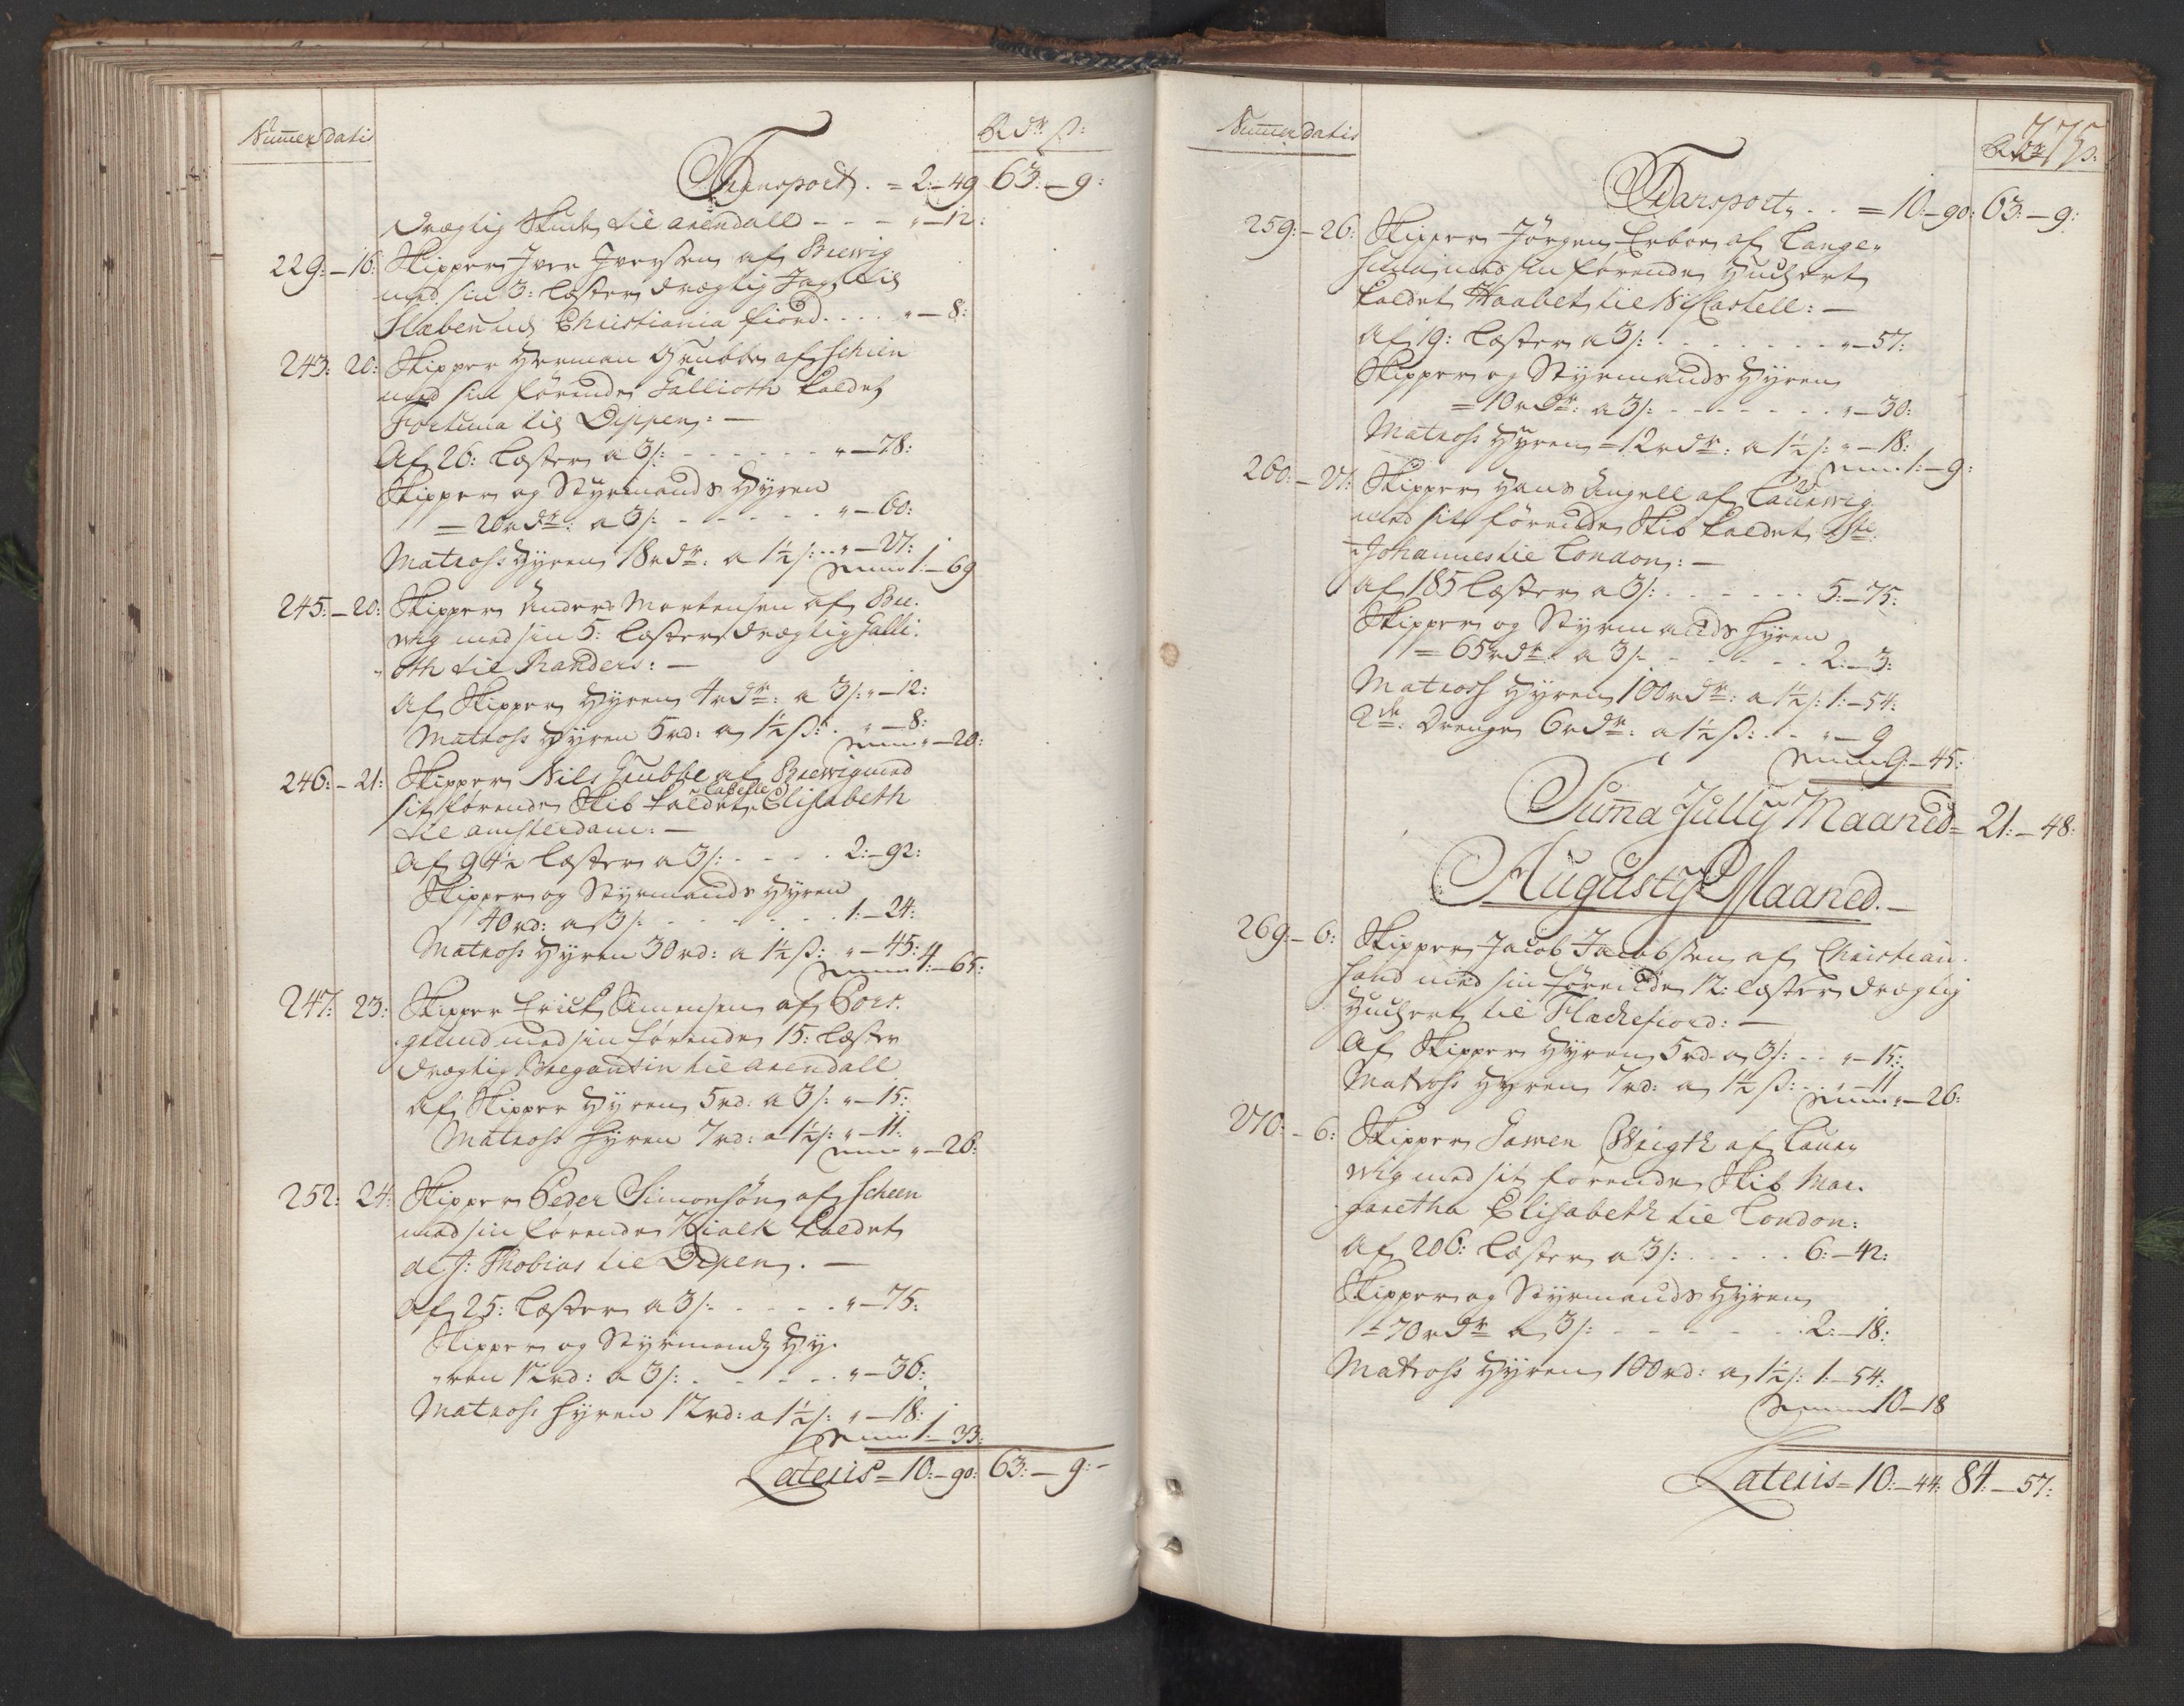 Numer datis
Rdr ß:
Transport = 2:-49 63:-9:
drægtig Skude til Arendall - - - "-12:
229:-16: Skipper Iver Iversen af Brewig
med sin 3: Læster drægtig Jagt til
Christiania fiord .... "-8:
243: 20: Skipper Herman Grubbe af Schien
med sin førende Gallioth kaldet
Fortuna til Dippen: -
Af 26: Læster a 3/: - - - - - - "-78:
Skipper og Styrmands Hyren
= 20 rdr: a 3/: - - - - - "-60:
Matross Hyren 18 rdr: a 1½/: .. "-27:
Summa 1-69
245:-20: Skipper Anders Mortensen af Bre:
wig med sin 5: Læster drægtig Galli:
oth til Randers: -
Af Skipper Hyren 4 rdr: a 3/: "-12:
Matross Hyren 5 rd: a 1½ ß: . "-8:
Summa "-20:
246:-21: Skipper Nils Grubbe af Brewig med
sit førende Skib kaldet Isabelle Elisabeth
til Amsterdam: -
Af 94½ Læster a 3/: - - - - 2:-92:
Skipper og Styrmands Hyren
40 rd: a 3/: - - - - - - 1:-24:
Matross Hyren 30 rd: a 1½ ß: "-45:
Summa 4:-65:
247: 23: Skipper Erick Simensen af Pors:
grund med sin førende 15: Læster
drægtig Bregantin til Arendall
Af Skipper Hyren 5 rd: a 3/: "-15:
Matross Hyren 7 rd: a 1½/: "-11:
Summa "-26:
252: 24: Skipper Peder Simonsøn af Scheen
med sin førende Hialk kaldet
de J: Thobias til Dipen. -
Af 25: Læster a 3/: - - - - - "-75:
Skipper og Styrmands Hy:
ren 12 rd: a 3/: - - - - - "-36:
Matross Hyren 12 rd: a 1½/: "-18:
Summa 1-33:
Lateris = 10:-90: 63:-9:-
775
Numer datis
Rdr ß:
Transport . . = 10:-90: 63:-9:
259:-26: Skipper Jørgen Erboe af Lange:
sund med sin førende Huchert
kaldet Haabet til NyCastell: -
Af 19: Læster a 3/: . . . . . . . "-57:
Skipper og Styrmands Hyren
= 10 rdr: a 3/: - - - - - - - "-30:
Matross Hyren = 12 rdr: a 1½/: "-18:
Summa 1:-9:
260:-27: Skipper Hans Angell af Laurwig
med sit førende Skib kaldet Ste:
Johannes til London: -
Af 185 Læster a 3/: . . . . . . 5:-75:
Skipper og Styrmands Hyren
= 65 rdr: a 3/: - - - - - - 2:-3:
Matross Hyren 100 rdr: a 1½/: 1:-54:
2de: Drenge 6 rdr: a 1½ ß: . - "-9
Summa 9:-45:
Suma Jullÿ Maaned = 21:-48:
Augustÿ Maaned. -
269:-6: Skipper Jacob Jacobsen af Christian:
sand med sin førende 12: læster drægtig
Huchert til Flechefiord: -
Af Skipper Hyren 5 rd a 3/: . . "-15:
Matross Hyren 7 rd: a 1½ ß: . . "-11
Summa "-26:
270:-6: Skipper Gawen Wrigth af Laur:
wig med sit førende Skib Mar:
garetha Elisabeth til London:
Af 206: Læster a 3/: . . . . . 6:-42:
Skipper og Styrmands Hyren
= 70 rdr a 3/: - - - - - 2:-18:
Matross Hyren 100 rd: a 1½/: 1:-54:
Summa 10-18
Lateris = 10:-44: 84:-57: